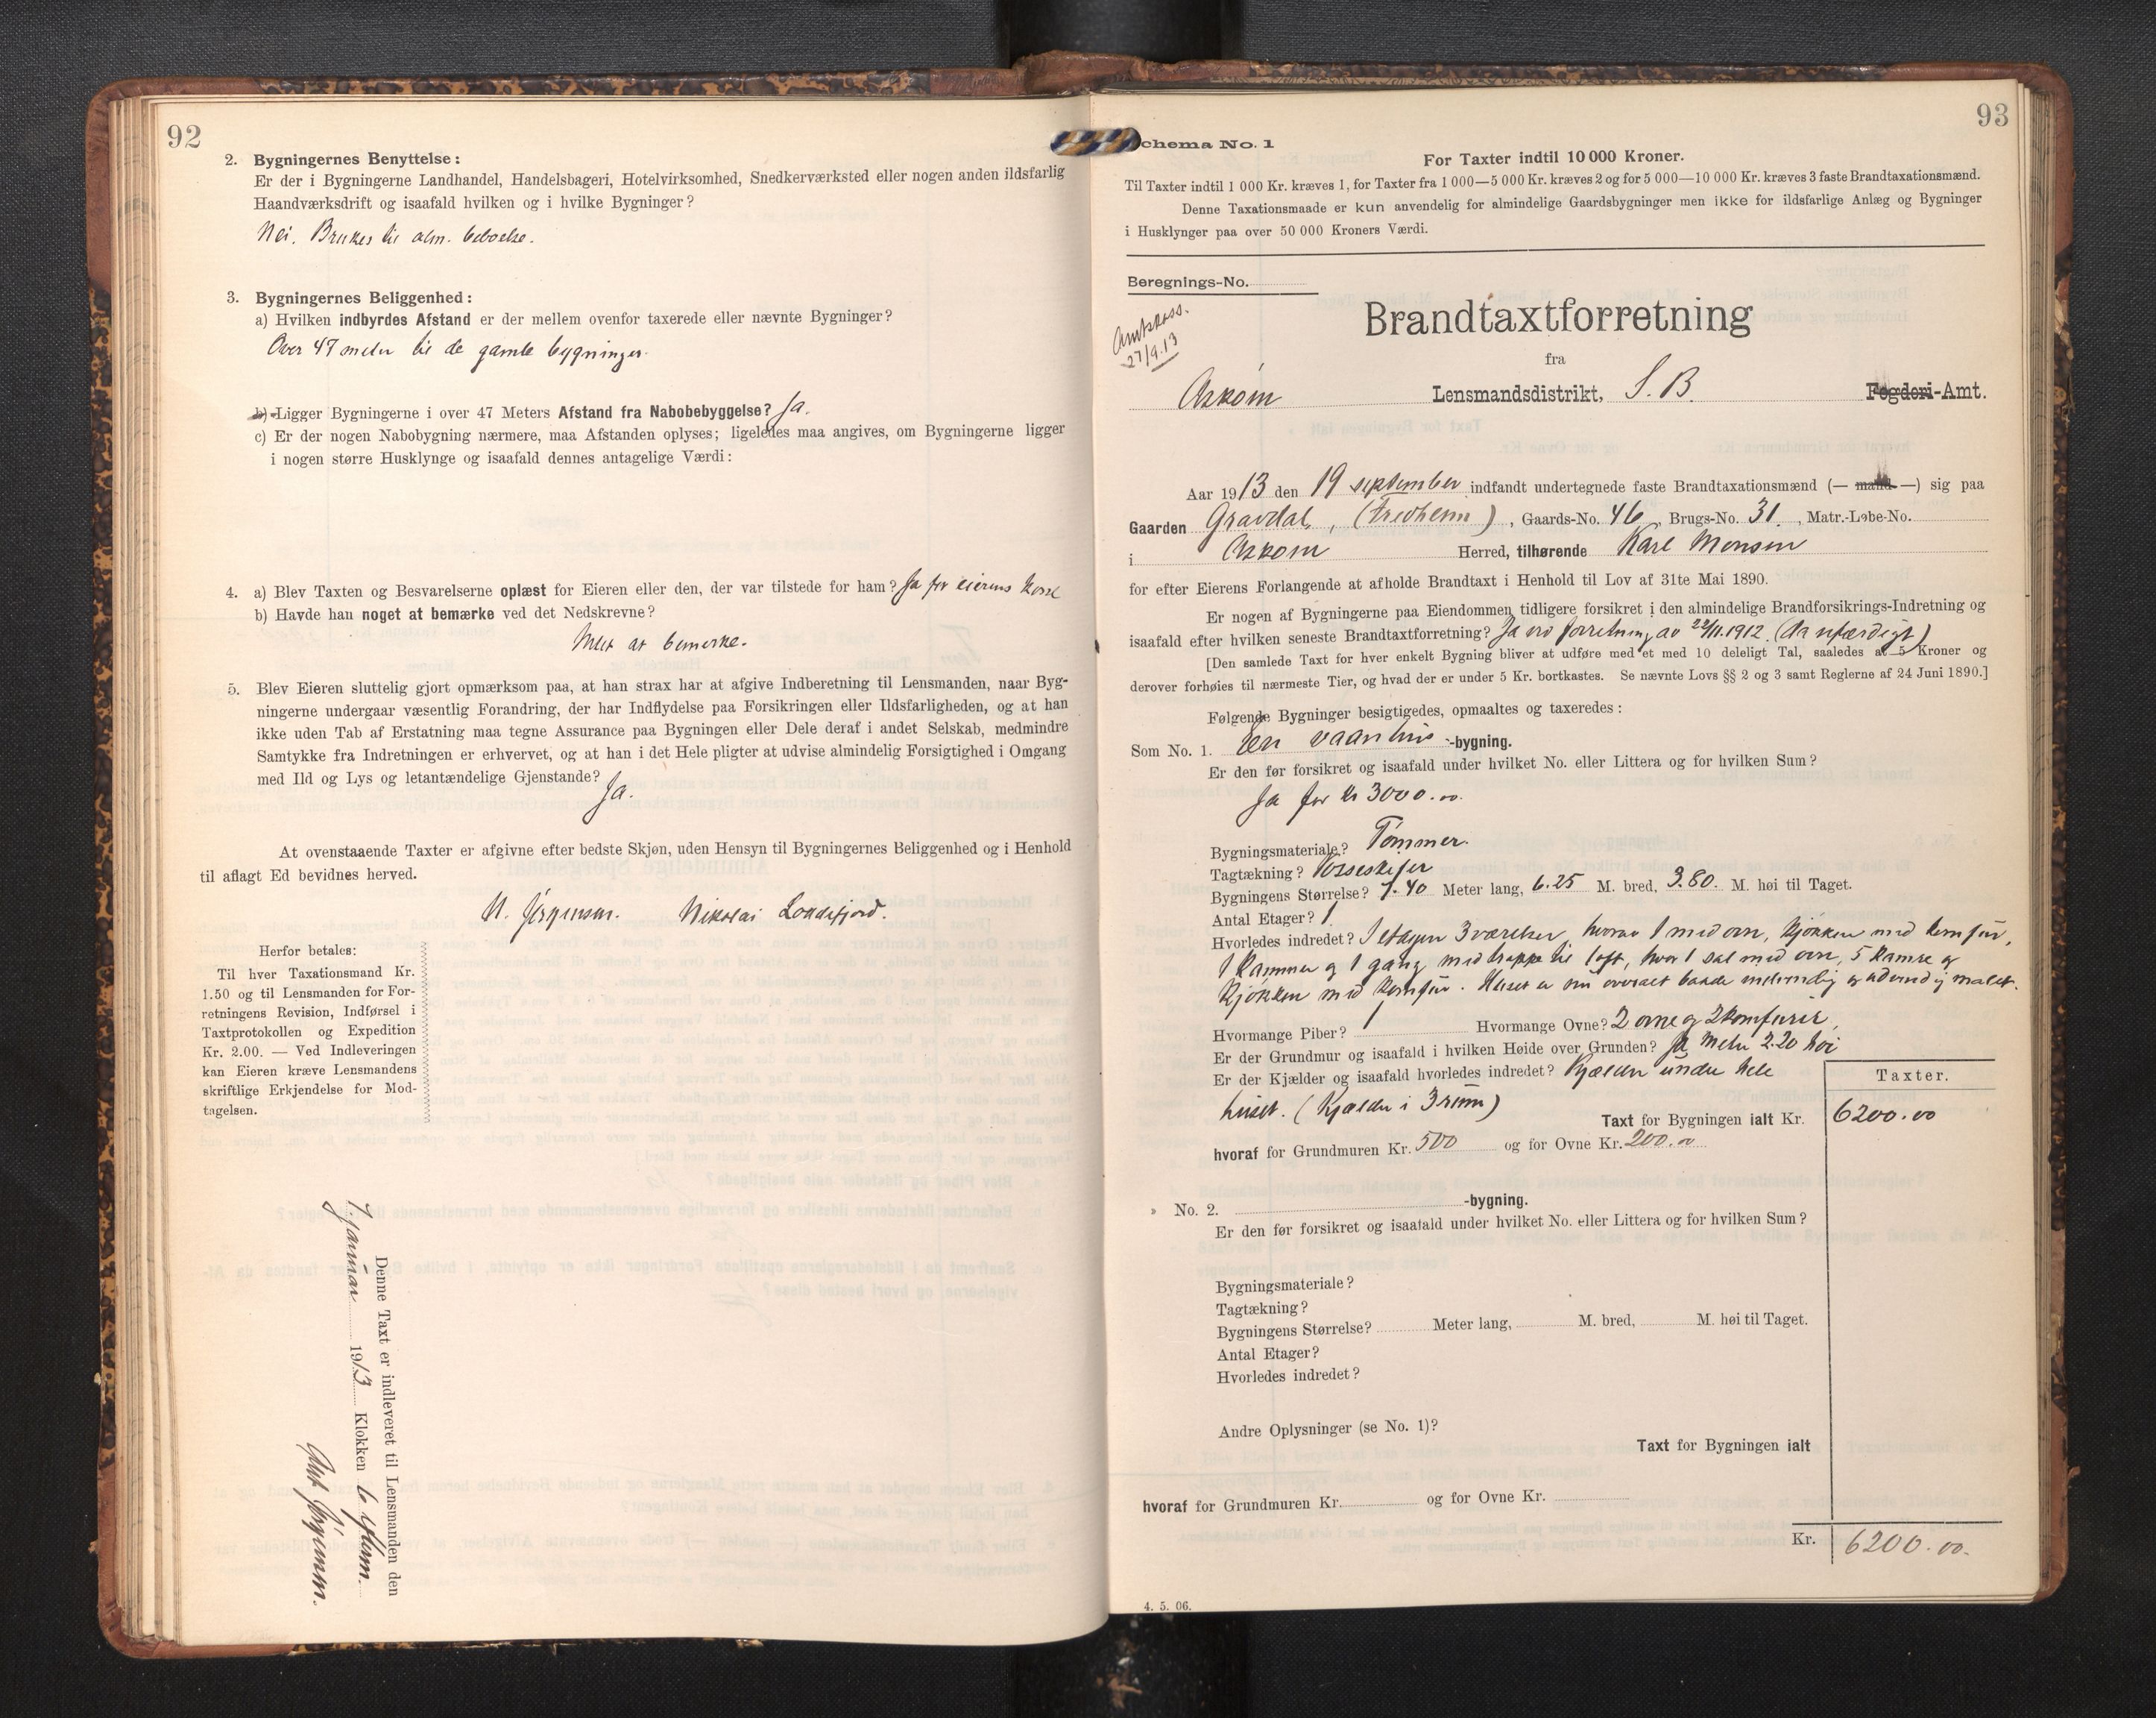 92
2. Bygningernes Benyttelse:
Er der i Bygningerne Landhandel, Handelsbageri, Hotelvirksomhed, Snedkerværksted eller nogen anden ildsfarlig
Haandværksdrift og isaafald hvilken og i hvilke Bygninger?
Nei. Brukes til alm. beboelse.
3. Bygningernes Beliggenhed:
a) Hvilken indbyrdes Afstand er der mellem ovenfor taxerede eller nævnte Bygninger?
Over 47 meter til de gamle bygninger.
b) Ligger Bygningerne i over 47 Meters Afstand fra Nabobebyggelse? Ja.
c) Er der nogen Nabobygning nærmere, maa Afstanden oplyses; ligeledes maa angives, om Bygningerne ligger
i nogen større Husklynge og isaafald dennes antagelige Værdi:
4. a) Blev Taxten og Besvarelserne oplæst for Eieren eller den, der var tilstede for ham? Ja for eierens kone
b) Havde han noget at bemærke ved det Nedskrevne?
Intet at bemerke.
5. Blev Eieren sluttelig gjort opmærksom paa, at han strax har at afgive Indberetning til Lensmanden, naar Byg-
ningerne undergaar væsentlig Forandring, der har Indflydelse paa Forsikringen eller Ildsfarligheden, og at han
ikke uden Tab af Erstatning maa tegne Assurance paa Bygningen eller Dele deraf i andet Selskab, medmindre
Samtykke fra Indretningen er erhvervet, og at han i det Hele pligter at udvise almindelig Forsigtighed i Omgang
med Ild og Lys og letantændelige Gjenstande?
Ja.
At ovenstaaende Taxter er afgivne efter bedste Skjøn, uden Hensyn til Bygningernes Beliggenhed og i Henhold
til aflagt Ed bevidnes herved.
N. Jørgensen. Nikolai Loddefjord.
Herfor betales:
Til hver Taxationsmand Kr.
1.50 og til Lensmanden for For-
retningens Revision, Indførsel i
Taxtprotokollen og Expedition
Kr. 2.00. — Ved Indleveringen
kan Eieren kræve Lensmandens
skriftlige Erkjendelse for Mod-
tagelsen.
Denne Taxt er indleveret til Lensmanden den
7 januar 1913 Klokken 6 efterm.
Jørgensen.
93
Schema No. 1
For Taxter indtil 10 000 Kroner.
Til Taxter indtil 1 000 Kr. kræves 1, for Taxter fra 1 000—5 000 Kr. kræves 2 og for 5 000—10 000 Kr. kræves 3 faste Brandtaxationsmænd.
Denne Taxationsmaade er kun anvendelig for almindelige Gaardsbygninger men ikke for ildsfarlige Anlæg og Bygninger
i Husklynger paa over 50 000 Kroners Værdi.
Beregnings-No.
Amtskass.
27/9.13
Brandtaxtforretning
fra
Askøen Lensmandsdistrikt, S. B. Fogderi-Amt.
Aar 1913 den 19 september indfandt undertegnede faste Brandtaxationsmænd (— mand —) sig paa
Gaarden Gravdal, (Fredheim), Gaards-No. 46, Brugs-No. 31, Matr.-Løbe-No.
i Askøen Herred, tilhørende Karl Monsen
for efter Eierens Forlangende at afholde Brandtaxt i Henhold til Lov af 31te Mai 1890.
Er nogen af Bygningerne paa Eiendommen tidligere forsikret i den almindelige Brandforsikrings-Indretning og
isaafald efter hvilken seneste Brandtaxtforretning? Ja ved forretning av 22/11.1912. (Da ufærdigt)
[Den samlede Taxt for hver enkelt Bygning bliver at udføre med et med 10 deleligt Tal, saaledes at 5 Kroner og
derover forhøies til nærmeste Tier, og hvad der er under 5 Kr. bortkastes. Se nævnte Lovs §§ 2 og 3 samt Reglerne af 24 Juni 1890.]
Følgende Bygninger besigtigedes, opmaaltes og taxeredes:
Som No. 1. En vaanhus-bygning.
Er den før forsikret og isaafald under hvilket No. eller Littera og for hvilken Sum?
Ja for kr 3000.00.
Bygningsmateriale? Tømmer.
Tagtækning? Vosseskifer
Bygningens Størrelse? 7.40 Meter lang, 6.25 M. bred, 3.80. M. høi til Taget.
Antal Etager? 1
Hvorledes indredet? I etagen 3 værelser, hvorav 1 med ovn, kjøkken med komfur,
1 kammer og 1 gang med trappe til loft, hvor 1 sal med ovn, 5 kamre og
kjøkken med komfur. Huset er nu overalt baade indvendig og udvendig malet.
Hvormange Piber? 1 Hvormange Ovne? 2 ovne og 2 komfurer
Er der Grundmur og isaafald i hvilken Høide over Grunden? Ja Meter 2.20 høi
Er der Kjælder og isaafald hvorledes indredet? Kjælder under hele
huset. (Kjælder i 3 rum)
Taxter.
Taxt for Bygningen ialt Kr. 6200.00
hvoraf for Grundmuren Kr. 500 og for Ovne Kr. 200.00
» No. 2. -bygning.
Er den før forsikret og isaafald under hvilket No. eller Littera og for hvilken Sum?
Bygningsmateriale?
Tagtækning?
Bygningens Størrelse? Meter lang, M. bred, M. høi til Taget.
Antal Etager?
Hvorledes indredet?
Andre Oplysninger (se No. 1)?
Taxt for Bygningen ialt
hvoraf for Grundmuren Kr. og for Ovne Kr.
Kr. 6200.00.
4. 5. 06.